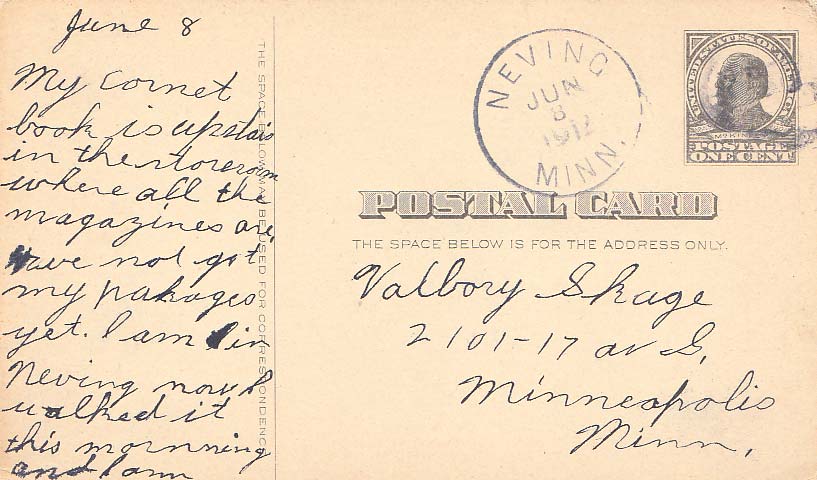 June 8
My cornet
book is upstais
in the storeroom
where all the
magazines are,
have not got
my pakages
yet. I am in
Neving now I
walked it
this mornning
and I am
THE SPACE BELOW MAY BE USED FOR CORRESPONDENCE
NEVING
JUN
8
1912
MINN.
UNITED STATES OF AMERICA
McKINLEY
POSTAGE
ONE CENT
POSTAL CARD
THE SPACE BELOW IS FOR THE ADDRESS ONLY.
Valbory Skage
2101-17 av S,
Minneapolis
Minn,